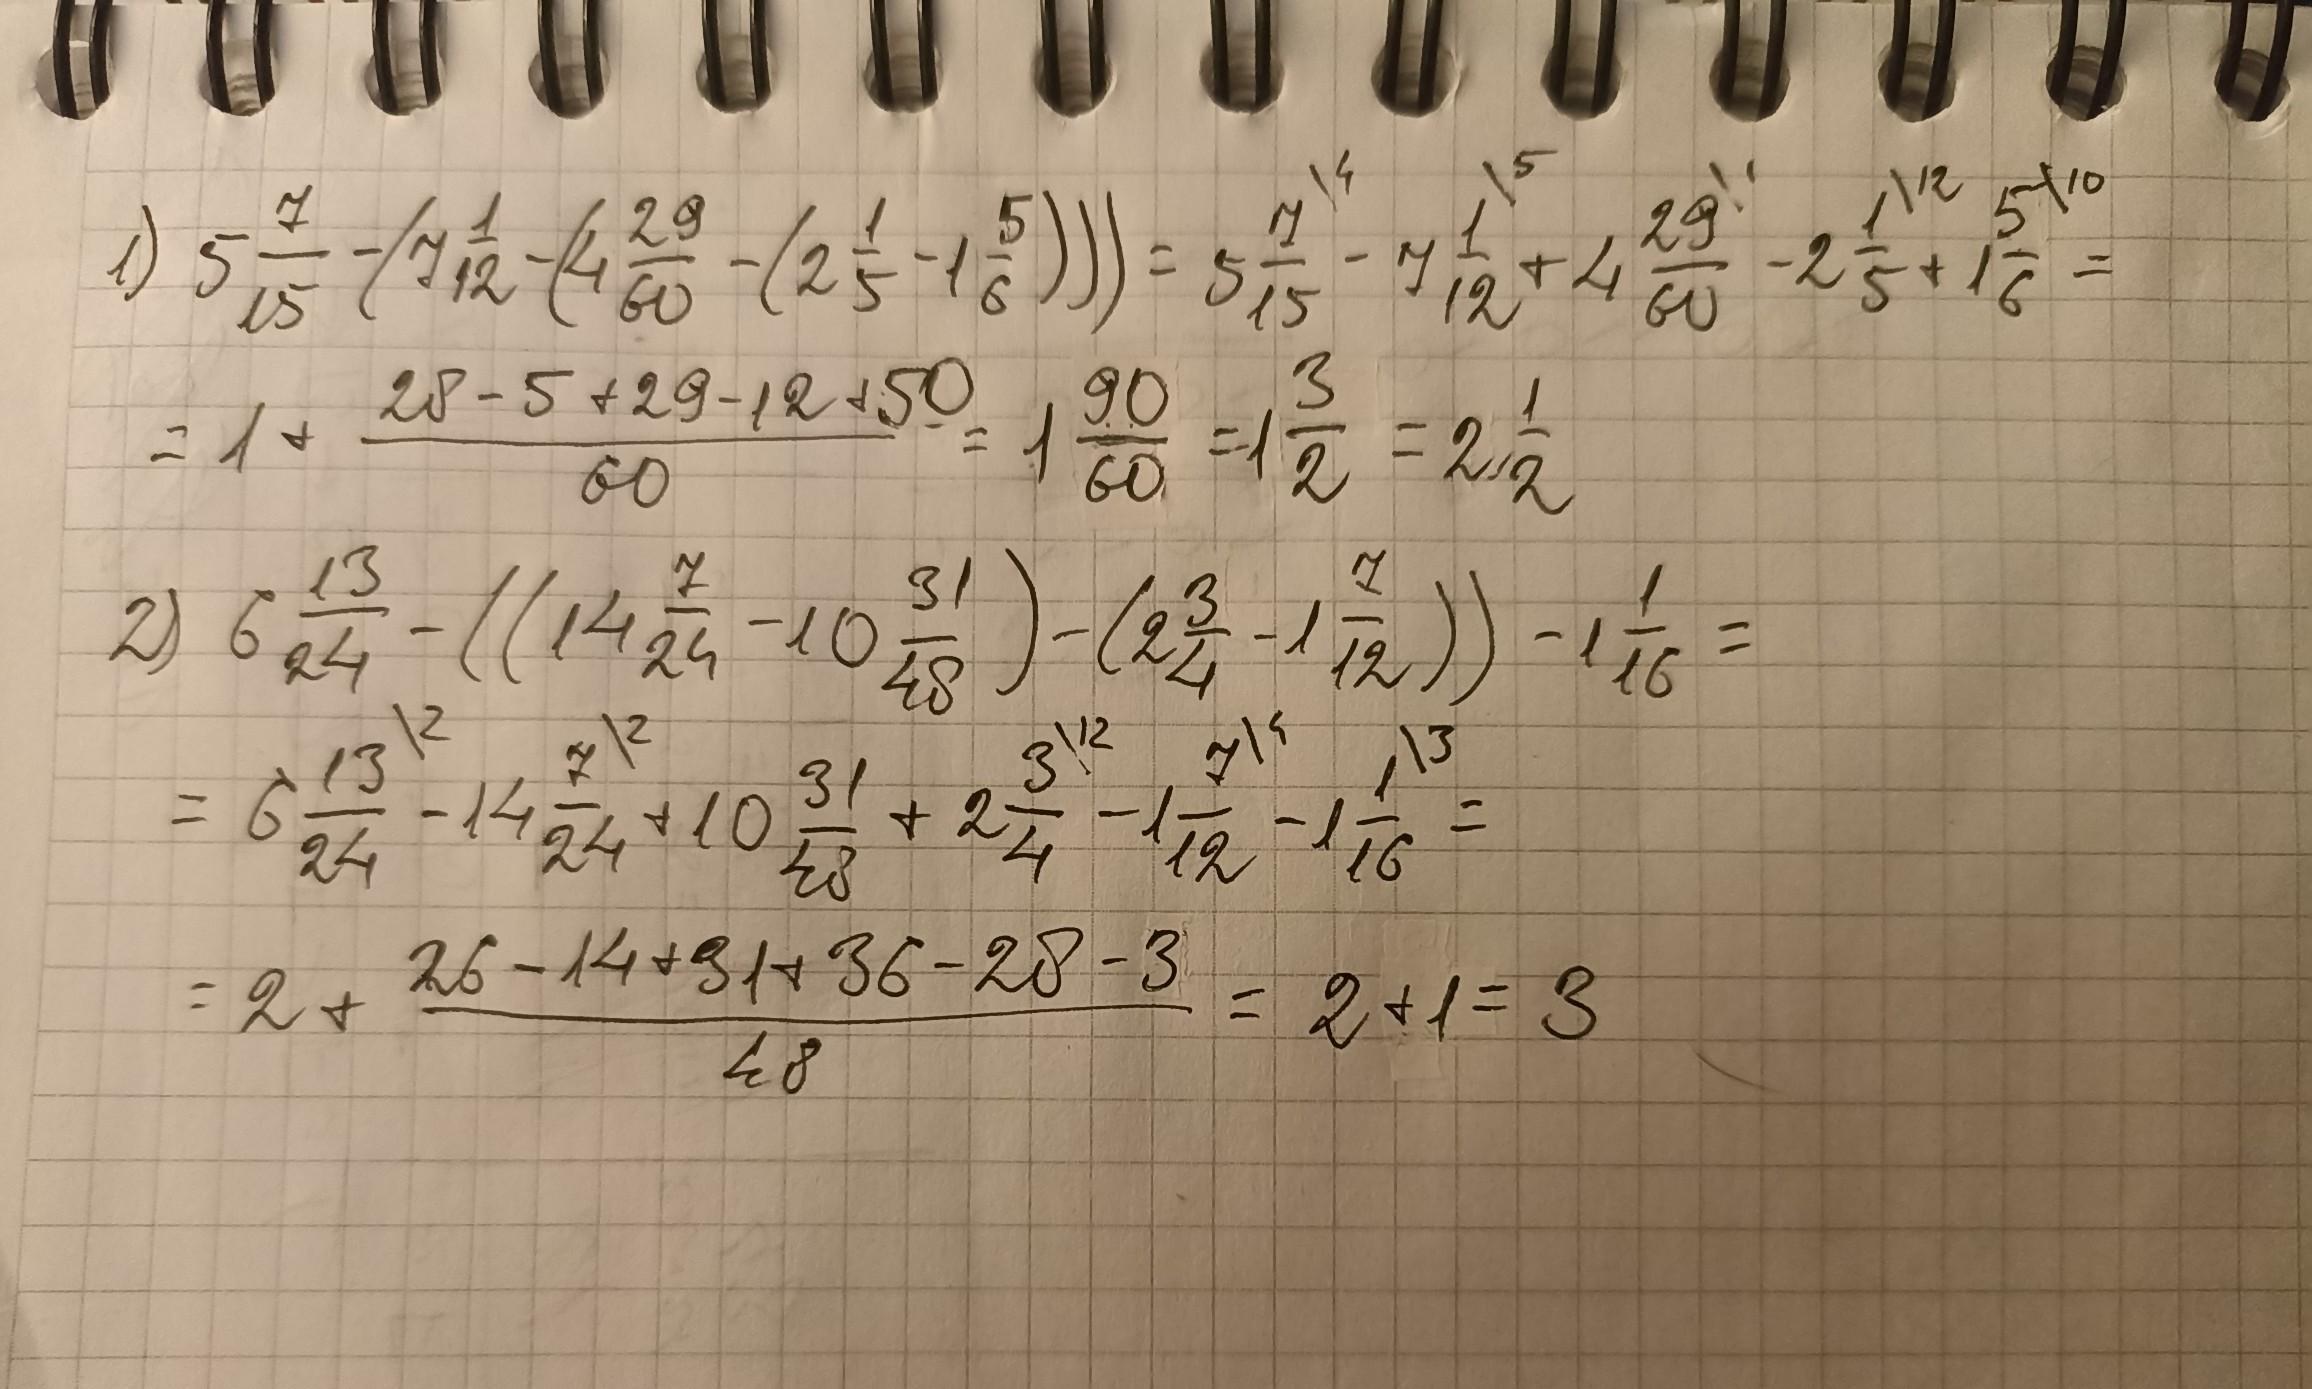 1) 5 7/15 - (7 1/12 - (4 29/60 - (2 1/5 - 1 5/6))) = 5 7\4/15 - 7 1\5/12 + 4 29\1/60 - 2 1\12/5 + 1 5\10/6 =
= 1 + (28 - 5 + 29 - 12 + 50)/60 = 1 90/60 = 1 3/2 = 2 1/2
2) 6 13/24 - ((14 7/24 - 10 31/48) - (2 3/4 - 1 7/12)) - 1 1/16 =
= 6 13\2/24 - 14 7\2/24 + 10 31/48 + 2 3\12/4 - 1 7\4/12 - 1 1\3/16 =
= 2 + (26 - 14 + 31 + 36 - 28 - 3)/48 = 2 + 1 = 3